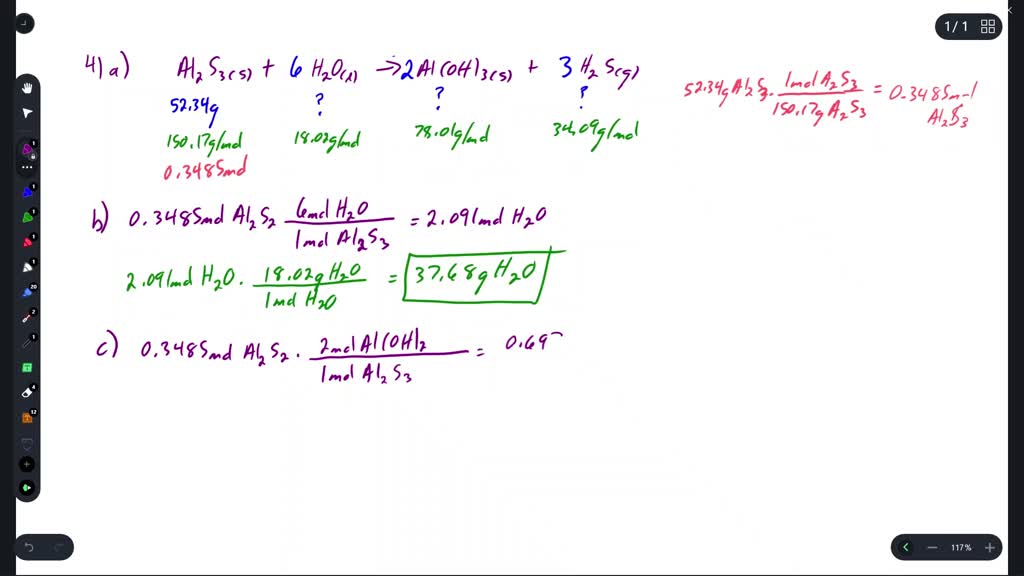 1/1
4) a) Al2S3(s) + 6 H2O(l) → 2 Al(OH)3(s) + 3 H2S(g)
52.34g ? ? ?
150.17g/mol 18.02g/mol 78.01g/mol 34.09g/mol
0.3485mol
52.34g Al2S3 · 1mol A2S3 / 150.17g A2S3 = 0.3485mol Al2S3
b) 0.3485mol Al2S2 6mol H2O / 1mol Al2S3 = 2.091mol H2O
2.091mol H2O · 18.02g H2O / 1mol H2O = 37.68g H2O
c) 0.3485mol Al2S2 · 2mol Al(OH)2 / 1mol Al2S3 = 0.69
117%